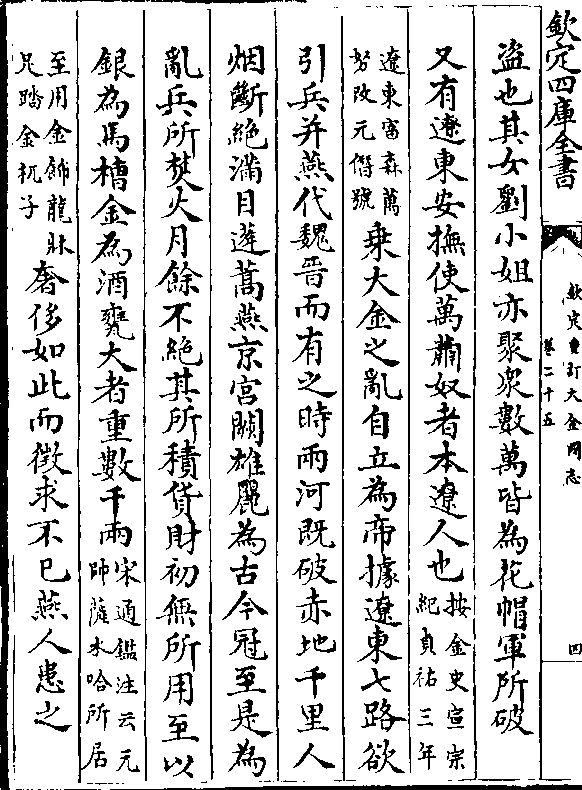 欽定四庫全書
欽定重訂大金國志
卷二十五
四
盜也其女劉小姐亦聚衆數萬皆為花帽軍所破
又有遼東安撫使萬鬴奴者本遼人也按金史宣宗
紀貞祐三年
遼東富森萬
努改元僭號乗大金之亂自立為帝據遼東七路欲
引兵并燕代魏晉而有之時兩河既破赤地千里人
烟斷絶滿目蓬蒿燕京宮闕雄麗為古今冠至是為
亂兵所焚火月餘不絶其所積貨財初無所用至以
銀為馬槽金為酒甕大者重數千兩宋通鑑注云元
帥薩木哈所居
至用金飾龍牀
足踏金杌子奢侈如此而徵求不已燕人患之